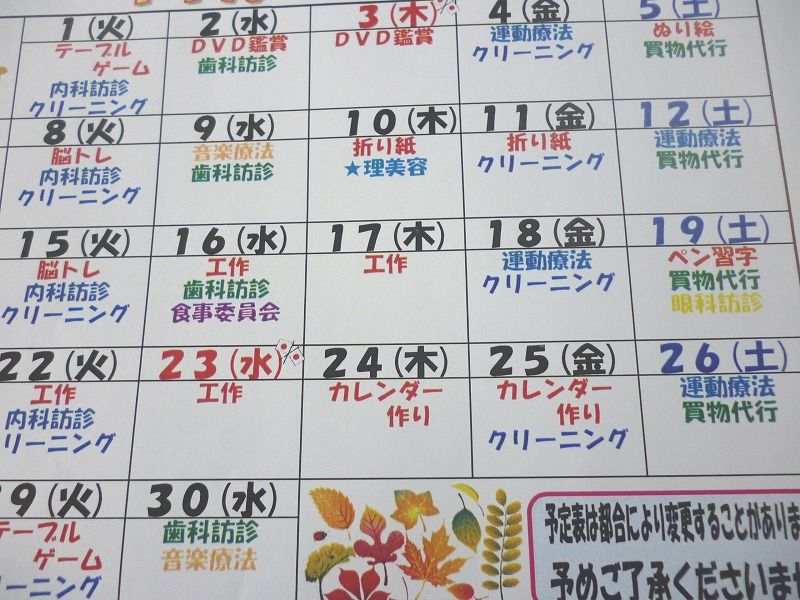 1(火) 2(水) 3(木) 4(金) 5(土)
テーブル
ゲーム
内科訪診
クリーニング
DVD鑑賞
歯科訪診
DVD鑑賞
運動療法
クリーニング
ぬり絵
買物代行
8(火) 9(水) 10(木) 11(金) 12(土)
脳トレ
内科訪診
クリーニング
音楽療法
歯科訪診
折り紙
★理美容
折り紙
クリーニング
運動療法
買物代行
15(火) 16(水) 17(木) 18(金) 19(土)
脳トレ
内科訪診
クリーニング
工作
歯科訪診
食事委員会
工作
運動療法
クリーニング
ペン習字
買物代行
眼科訪診
22(火) 23(水) 24(木) 25(金) 26(土)
工作
内科訪診
リーニング
工作
カレンダー
作り
カレンダー
作り
クリーニング
運動療法
買物代行
9(火) 30(水)
テーブル
ゲーム
リーニング
歯科訪診
音楽療法
予定表は都合により変更することがありま
予めご了承くださいませ